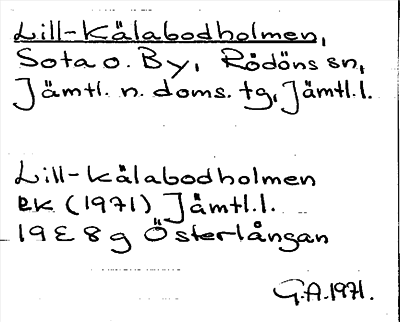 Lill-Kälabodholmen,
Sota o. By, Rödöns sn,
Jämtl. n. doms. tg, Jämtl.l.
Lill-kälabodholmen
ek (1971) Jämtl.l.
19 E 8 g Österlångan
G.A. 1971.